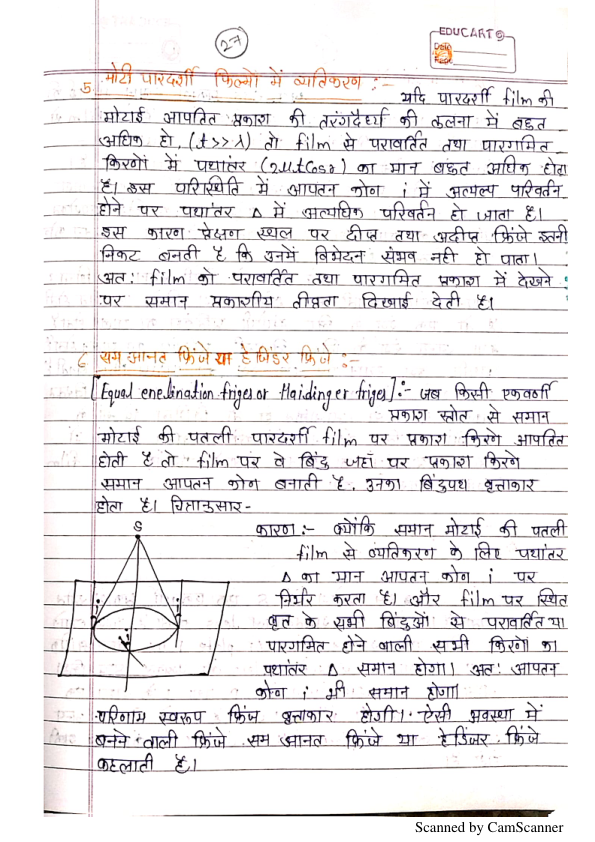 27
EDUCART
Date
Page
5 मोटी पारदर्शी फिल्मों में व्यतिकरण :-
यदि पारदर्शी film की
मोटाई आपतित प्रकाश की तरंगदैर्ध्य की तुलना में बहुत
अधिक हो, (t>>λ) तो film से परावर्तित तथा पारगमित
किरणों में पथांतर (2μtCosr) का मान बहुत अधिक होता
है। इस परिस्थिति में आपतन कोण i में अत्यल्प परिवर्तन
होने पर पथांतर Δ में अत्यधिक परिवर्तन हो जाता है।
इस कारण प्रेक्षण स्थल पर दीप्त तथा अदीप्त फ्रिंजे इतनी
निकट बनती है कि उनमें विभेदन संभव नही हो पाता।
अत: film को परावर्तित तथा पारगमित प्रकाश में देखने
पर समान प्रकाशीय तीव्रता दिखाई देती है।
6 सम आनत फ्रिंजे या हेडिंजर फ्रिंजे :-
[Equal enclination friges or Haidinger friges] :- जब किसी एकवर्णी
प्रकाश स्रोत से समान
मोटाई की पतली पारदर्शी film पर प्रकाश किरणे आपतित
होती है तो film पर वे बिंदु जहाँ पर प्रकाश किरणे
समान आपतन कोण बनाती है, उनका बिंदुपथ वृत्ताकार
होता है। चित्रानुसार -
S
कारण :- क्योंकि समान मोटाई की पतली
film से व्यतिकरण के लिए पथांतर
Δ का मान आपतन कोण i पर
निर्भर करता है। और film पर स्थित
वृत के सभी बिंदुओं से परावर्तित या
पारगमित होने वाली सभी किरणों का
पथांतर Δ समान होगा। अत: आपतन
कोण i भी समान होगा।
i
i
परिणाम स्वरूप फ्रिंज वृत्ताकार होगी। ऐसी अवस्था में
बनने वाली फ्रिंजे सम आनत फ्रिंजे या हेडिंजर फ्रिंजे
कहलाती है।
Scanned by CamScanner